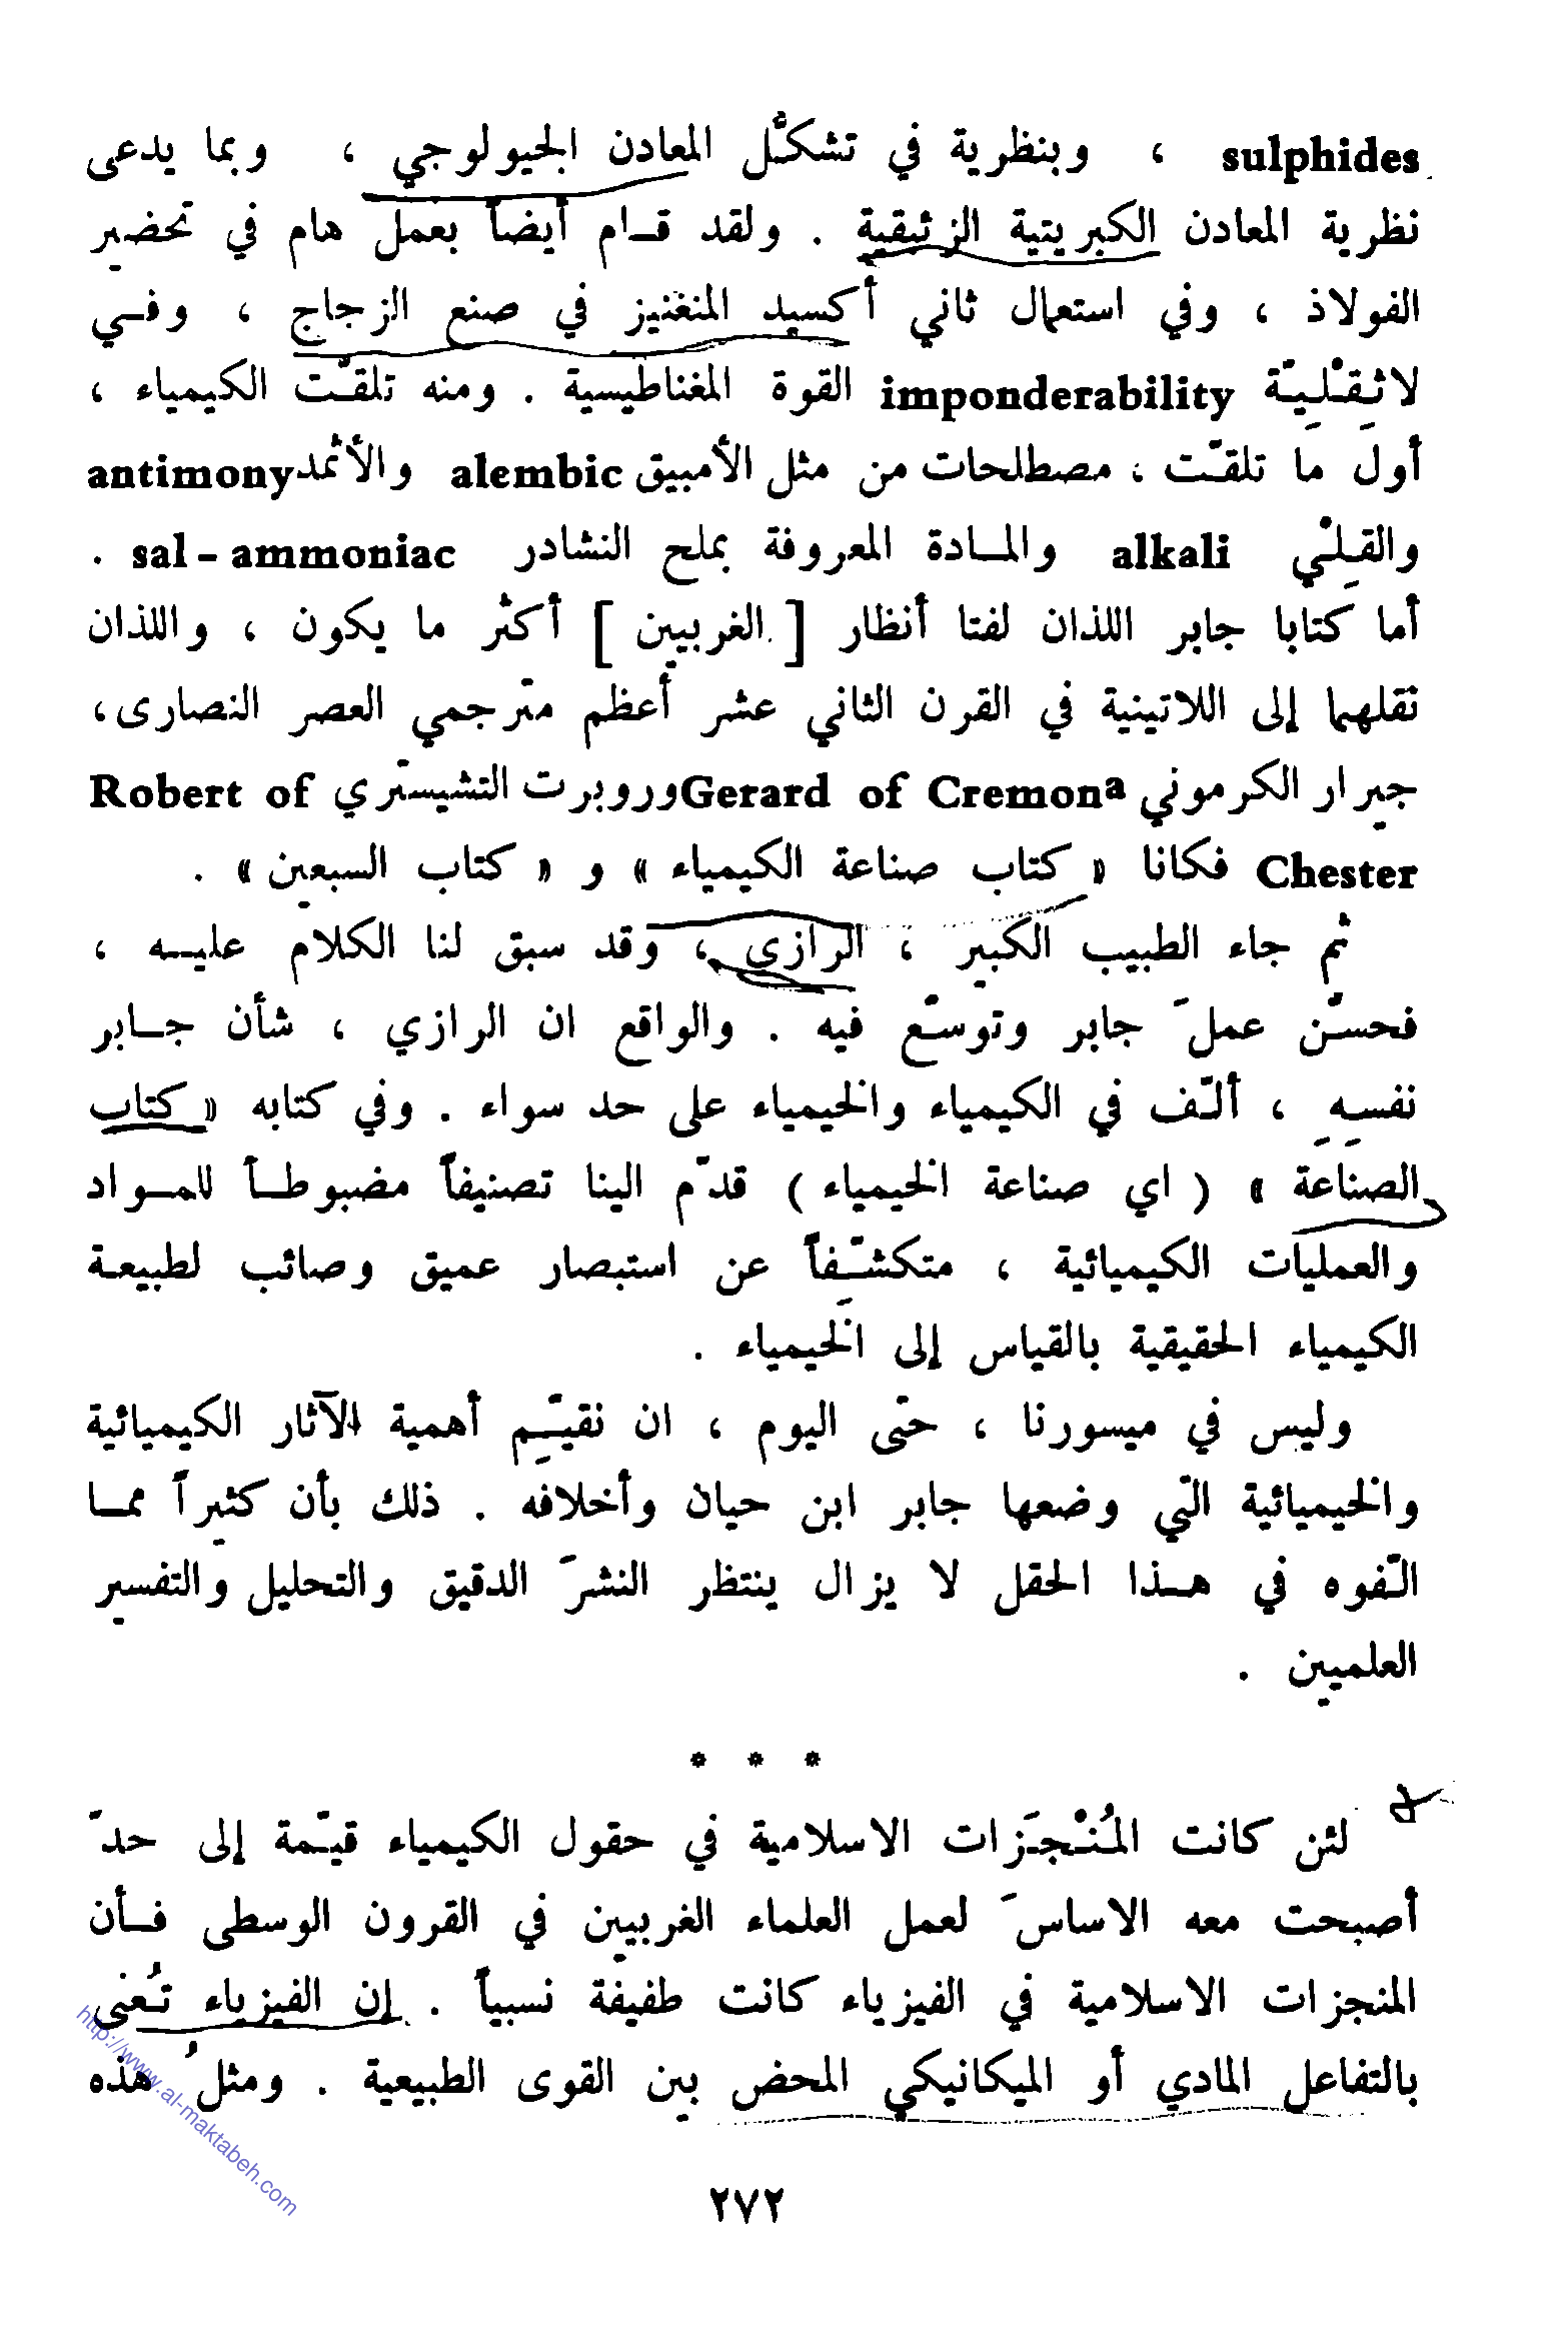 sulphides ، وبنظرية في تشكّل المعادن الجيولوجي ، وبما يدعى
نظرية المعادن الكبريتية الزئبقية . ولقد قـام أيضاً بعمل هام في تحضير
الفولاذ ، وفي استعمال ثاني أكسيد المنغنيز في صنع الزجاج ، وفـي
لاثِقْلِيّة imponderability القوة المغناطيسية . ومنه تلقّت الكيمياء ،
أول ما تلقّت ، مصطلحات من مثل الأمبيق alembic والأثمد antimony
والقِلْي alkali والمـادة المعروفة بملح النشادر sal - ammoniac .
أما كتابا جابر اللذان لفتا أنظار [ الغربيين ] أكثر ما يكون ، واللذان
نقلهما إلى اللاتينية في القرن الثاني عشر أعظم مترجمي العصر النصارى،
جيرار الكرموني Gerard of Cremona وروبرت التشيستري Robert of
Chester فكانا « كتاب صناعة الكيمياء » و « كتاب السبعين » .
ثم جاء الطبيب الكبير ، الرازي ، وقد سبق لنا الكلام عليـه ،
فحسّن عملَ جابر وتوسّع فيه . والواقع ان الرازي ، شأن جـابر
نفسِهِ ، ألّف في الكيمياء والخيمياء على حد سواء . وفي كتابه « كتاب
الصناعة » ( اي صناعة الخيمياء ) قدّم الينا تصنيفاً مضبوطـاً للمـواد
والعمليات الكيميائية ، متكشِّفاً عن استبصار عميق وصائب لطبيعـة
الكيمياء الحقيقية بالقياس إلى الخيمياء .
وليس في ميسورنا ، حتى اليوم ، ان نقيّم أهمية الآثار الكيميائية
والخيميائية التي وضعها جابر ابن حيان وأخلافه . ذلك بأن كثيراً ممـا
الّفوه في هـذا الحقل لا يزال ينتظر النشرَ الدقيق والتحليل والتفسير
العلميين .
* * *
لئن كانت المُنْجَزات الاسلامية في حقول الكيمياء قيّمة إلى حدّ
أصبحت معه الاساسَ لعمل العلماء الغربيين في القرون الوسطى فـأن
المنجزات الاسلامية في الفيزياء كانت طفيفة نسبياً . إن الفيزياء تُعنى
بالتفاعل المادي أو الميكانيكي المحض بين القوى الطبيعية . ومثلُ هذه
http://www.al-maktabeh.com
٢٧٢